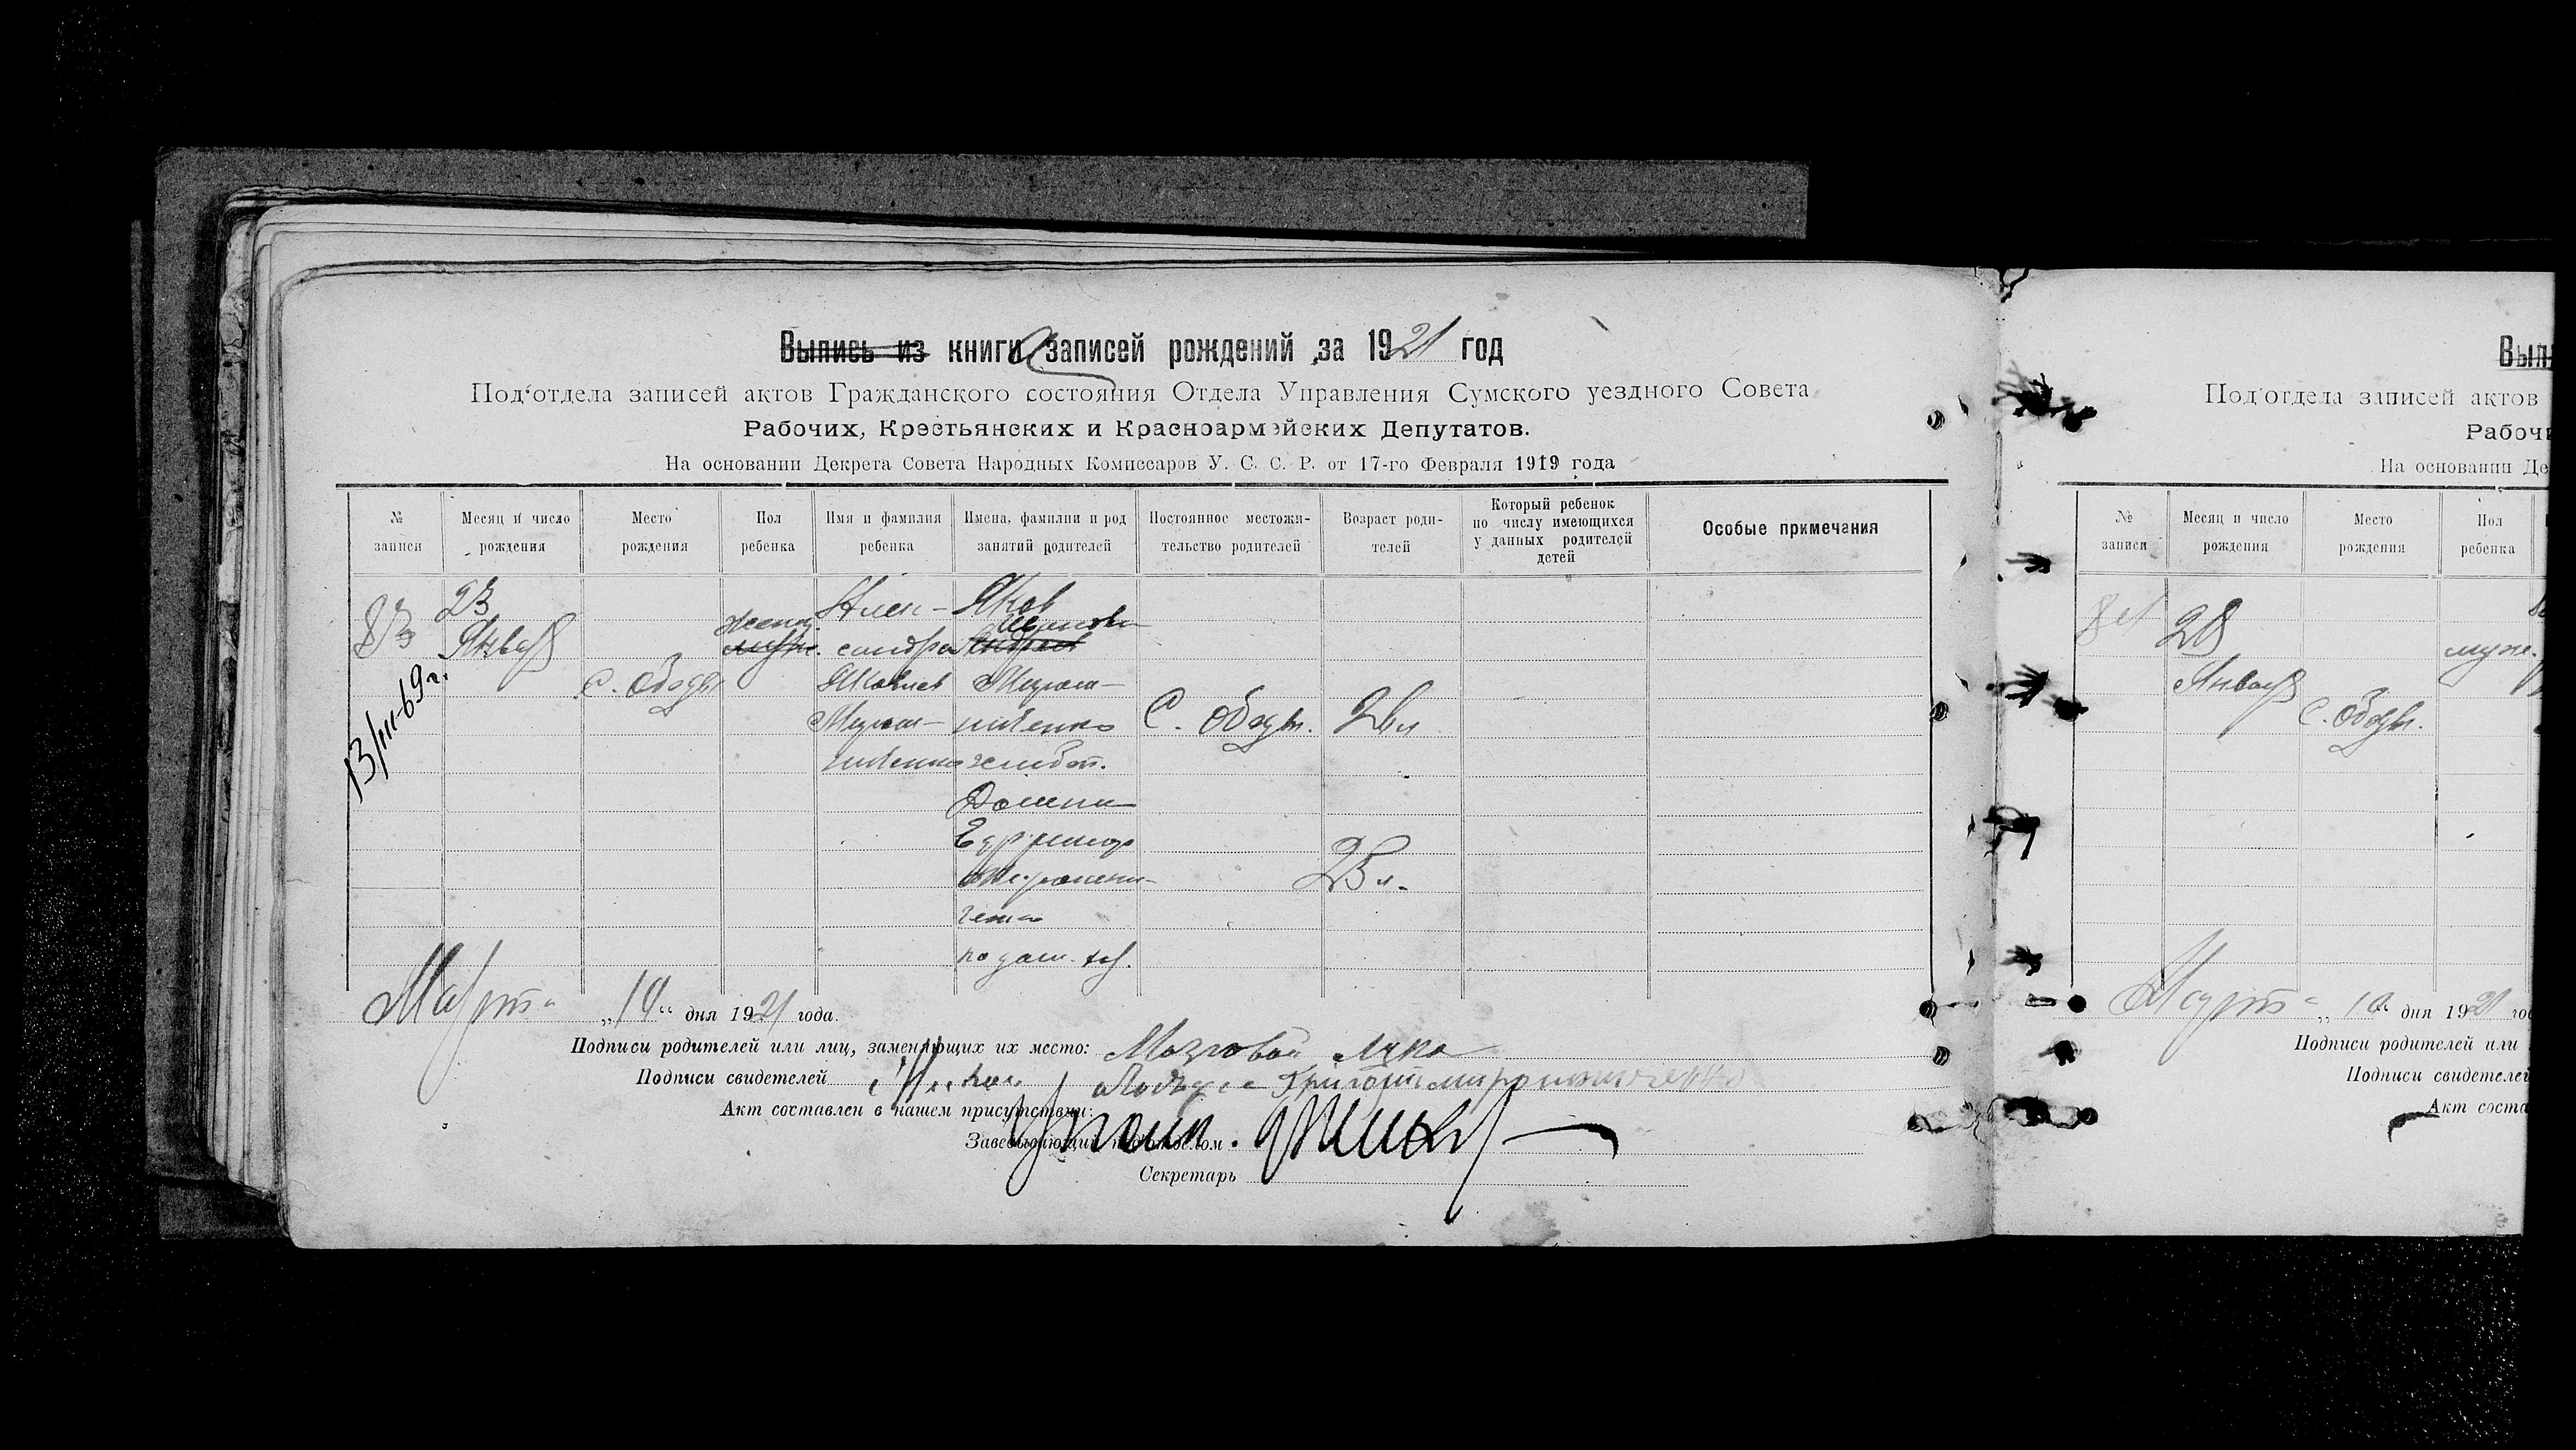 Выпись из книга записей рождений за 1921 год
Под‘отдела записей актов Гражданского состояния Отдела Управления Сумского уездного Совета
Рабочих, Крестьянских и Красноармейских Депутатов.
На основании Декрета Совета Народных Комиссаров У. С. С. Р. от 17-го Февраля 1919 года
№ записи
Месяц и число рождения
Место рождения
Пол ребенка
Имя и фамилия ребенка
Имена, фамилии и род занятий родителей
Постоянное местожительство родителей
Возраст родителей
Который ребенок по числу имеющихся у данных родителей детей
Особые примечания
83
13/III-69 г.
23
Январ
с. Ободы
женск
муж.
Алек-
сандра
Яковлев
Мирош-
ниченко
Яков
Иванови
Андреев
Мирош-
ниченко
хлебоп.
Домна
Мирошни-
ченко
по дом. хоз.
С. Ободы.
26 л
25 л.
Марта „10“ дня 1921 года.
Подписи родителей или лиц, заменяющих их место: Мозговой Лука
Подписи свидетелей Григорий Мирошниченко
Акт составлен в нашем присутствии:
Заведывающий подотделом
Секретарь
Вып
Под‘отдела записей актов
Рабочи
На основании Де
№ записи
Месяц и число рождения
Место рождения
Пол ребенка
84
28
Январ
с. Ободы.
муж.
Марта „10“ дня 1921 го
Подписи родителей или
Подписи свидетелей
Акт соста